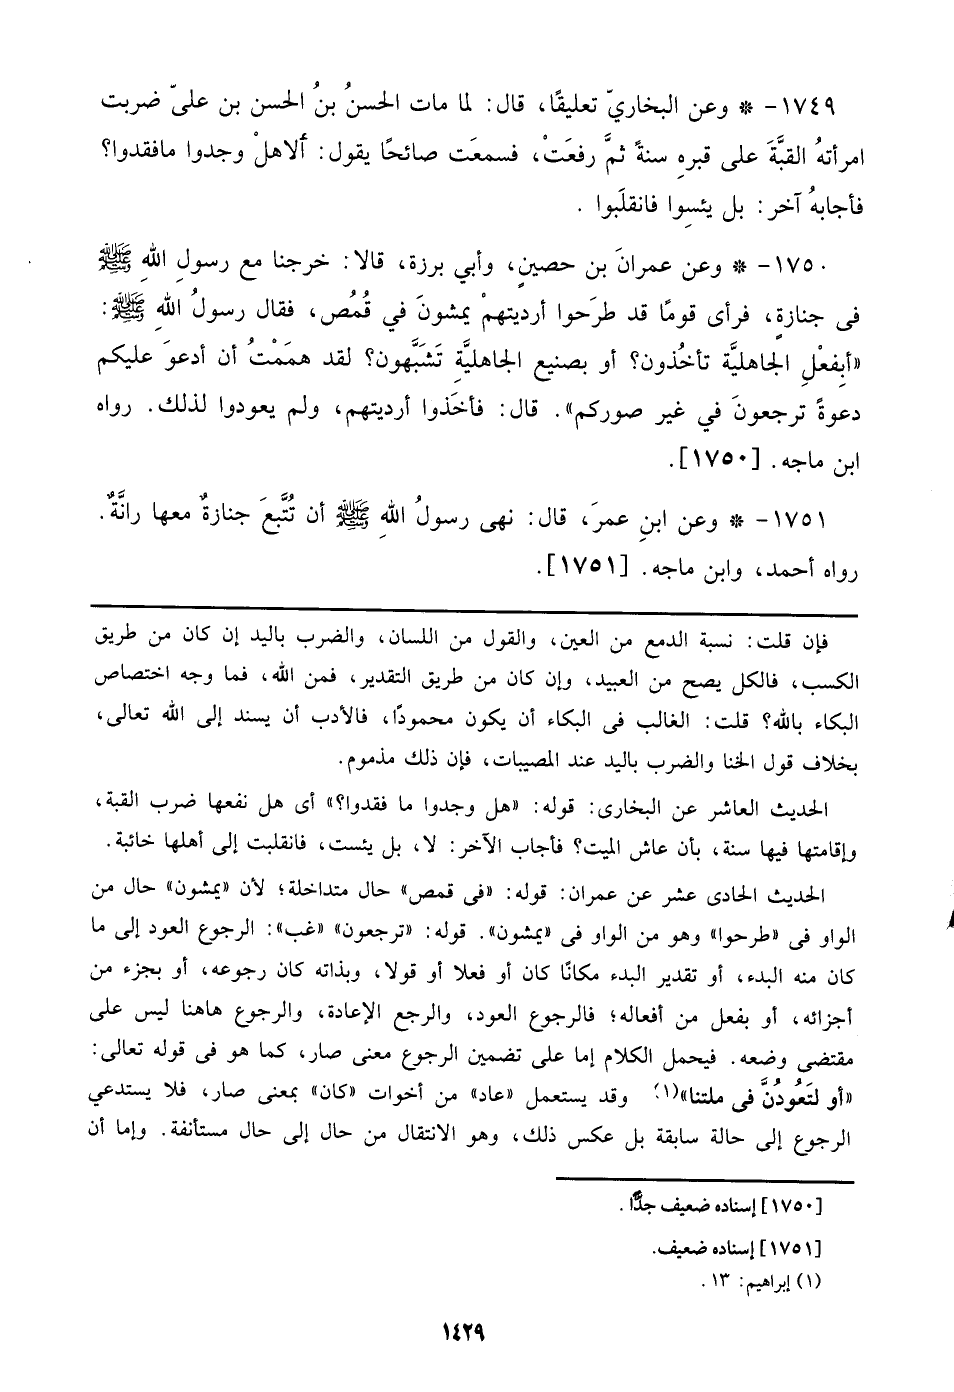 ١٧٤٩- * وعن البخاريّ تعليقًا، قال: لما مات الحسنُ بنُ الحسن بن علىّ ضربت
امرأتهُ القبَّةَ على قبرِه سنةً ثمَّ رفعَتْ، فسمعَت صائحًا يقول: ألاهلْ وجدوا مافقدوا؟
فأجابهُ آخر: بل يئسِوا فانقلَبوا .
١٧٥٠- * وعن عمرانَ بن حصينٍ، وأبي برزة، قالا: خرجنا مع رسولِ اللهِ ﷺ
فى جنازةٍ، فرأى قومًا قد طرَحوا أرديتهمْ يمشونَ في قُمُص، فقال رسولُ اللهِ ﷺ:
«أبِفعْلِ الجاهليَّة تأخُذون؟ أو بصنيع الجاهليَّةِ تَشَبَّهون؟ لقد هممَْتُ أن أدعوَ عليكم
دعوةً ترجعونَ في غير صوركم». قال: فأخَذوا أرديتهم، ولم يعودوا لذلك. رواه
ابن ماجه. [١٧٥٠].
١٧٥١- * وعن ابنِ عمرَ، قال: نهى رسولُ اللهِ ﷺ أن تُتَّبعَ جنازةٌ معها رانَّةٌ.
رواه أحمد، وابن ماجه. [١٧٥١].
فإن قلت: نسبة الدمع من العين، والقول من اللسان، والضرب باليد إن كان من طريق
الكسب، فالكل يصح من العبيد، وإن كان من طريق التقدير، فمن الله، فما وجه اختصاص
البكاء بالله؟ قلت: الغالب فى البكاء أن يكون محمودًا، فالأدب أن يسند إلى الله تعالى،
بخلاف قول الخنا والضرب باليد عند المصيبات، فإن ذلك مذموم.
الحديث العاشر عن البخارى: قوله: «هل وجدوا ما فقدوا؟» أى هل نفعها ضرب القبة،
وإقامتها فيها سنة، بأن عاش الميت؟ فأجاب الآخر: لا، بل يئست، فانقلبت إلى أهلها خائبة.
الحديث الحادى عشر عن عمران: قوله: «فى قمص» حال متداخلة؛ لأن «يمشون» حال من
الواو فى «طرحوا» وهو من الواو فى «يمشون». قوله: «ترجعون» «غب»: الرجوع العود إلى ما
كان منه البدء، أو تقدير البدء مكانًا كان أو فعلا أو قولا، وبذاته كان رجوعه، أو بجزء من
أجزائه، أو بفعل من أفعاله؛ فالرجوع العود، والرجع الإعادة، والرجوع هاهنا ليس على
مقتضى وضعه. فيحمل الكلام إما على تضمين الرجوع معنى صار، كما هو فى قوله تعالى:
«أو لتَعُودُنَّ فى ملتنا»(١) وقد يستعمل «عاد» من أخوات «كان» بمعنى صار، فلا يستدعي
الرجوع إلى حالة سابقة بل عكس ذلك، وهو الانتقال من حال إلى حال مستأنفة. وإما أن
[١٧٥٠] إسناده ضعيف جدًّا .
[١٧٥١] إسناده ضعيف.
(١) إبراهيم: ١٣ .
١٤٢٩